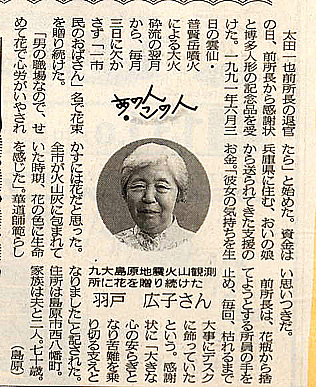 あの人この人
太田一也前所長の退官
の日、前所長から感謝状
と博多人形の記念品を受
けた。一九九一年六月三
日の雲仙・
普賢岳噴火
による大火
砕流の翌月
から、毎月
三日に欠か
さず「一市
民のおばさん」名で花束
を贈り続けた。
「男の職場なので、せ
めて花で心労がいやされ
たら」と始めた。資金は
兵庫県に住む、おいの娘
から送られてきた支援の
お金。「彼女の気持ちを生
かすには花だと思った。
全市が火山灰に包まれて
いた時期、花の色に生命
を感じた」。華道師範らし
い思いつきだ。
前所長は、花瓶から捨
てようとする所員の手を
止め、毎回、枯れるまで
大事にデスク
に飾っていた
という。感謝
状に「大きな
心の安らぎと
なり苦難を乗
り切る支えと
なりました」と記された。
住所は島原市西八幡町。
家族は夫と二人。七十歳
（島原）
九大島原地震火山観測
所に花を贈り続けた
羽戸 広子さん